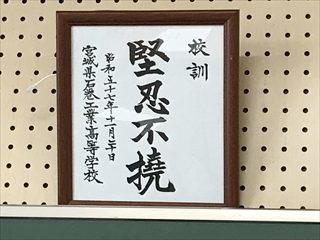 校訓
堅忍不撓
昭和五十七年十一月二十日
宮城県石巻工業高等学校